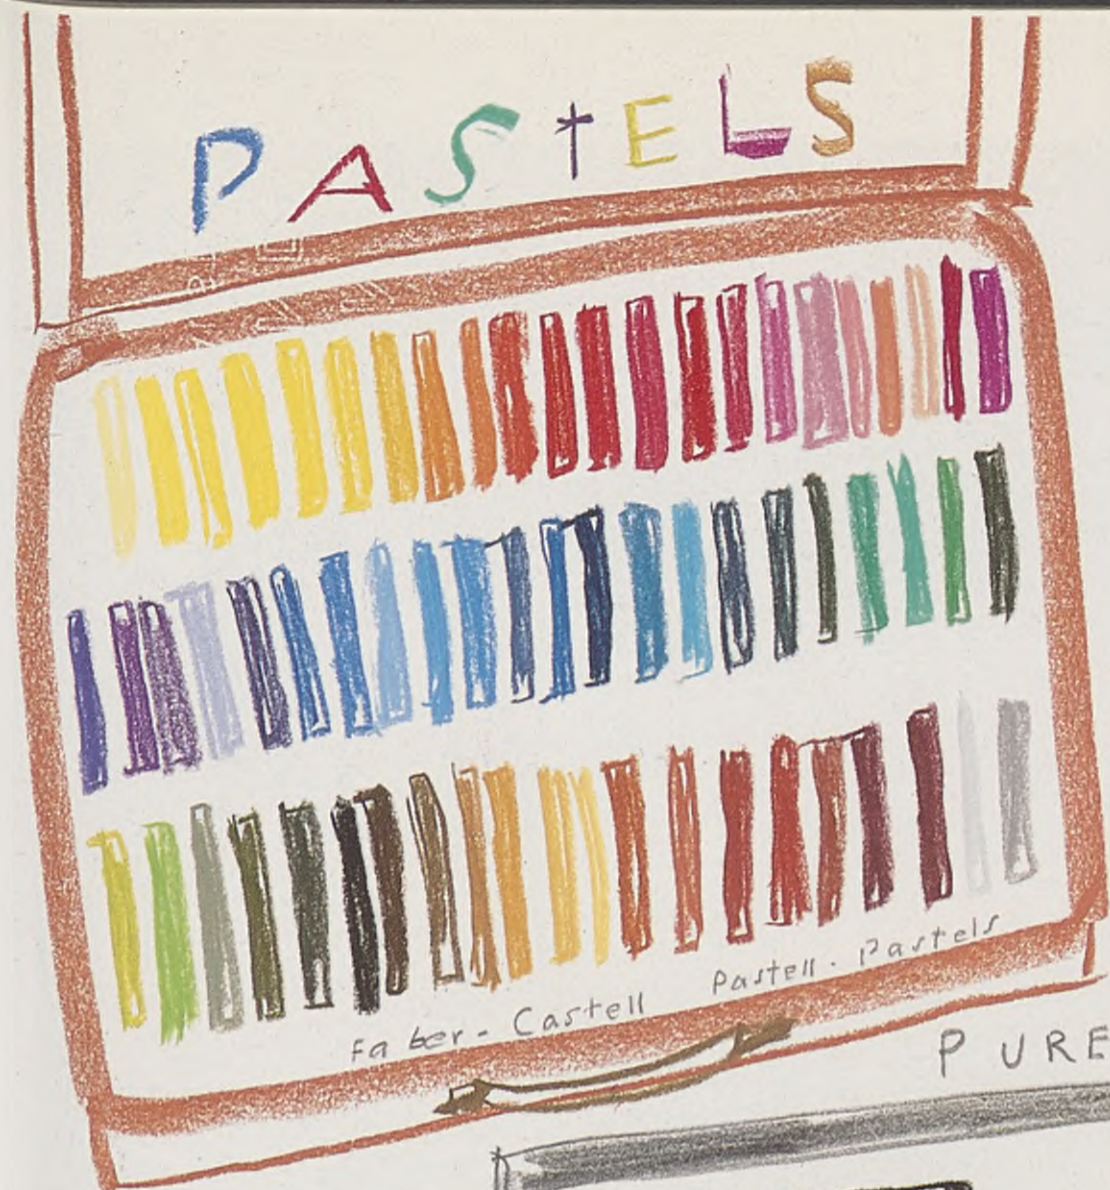 PAStELS
Faber - Castell Pastell. Pastels
PURE